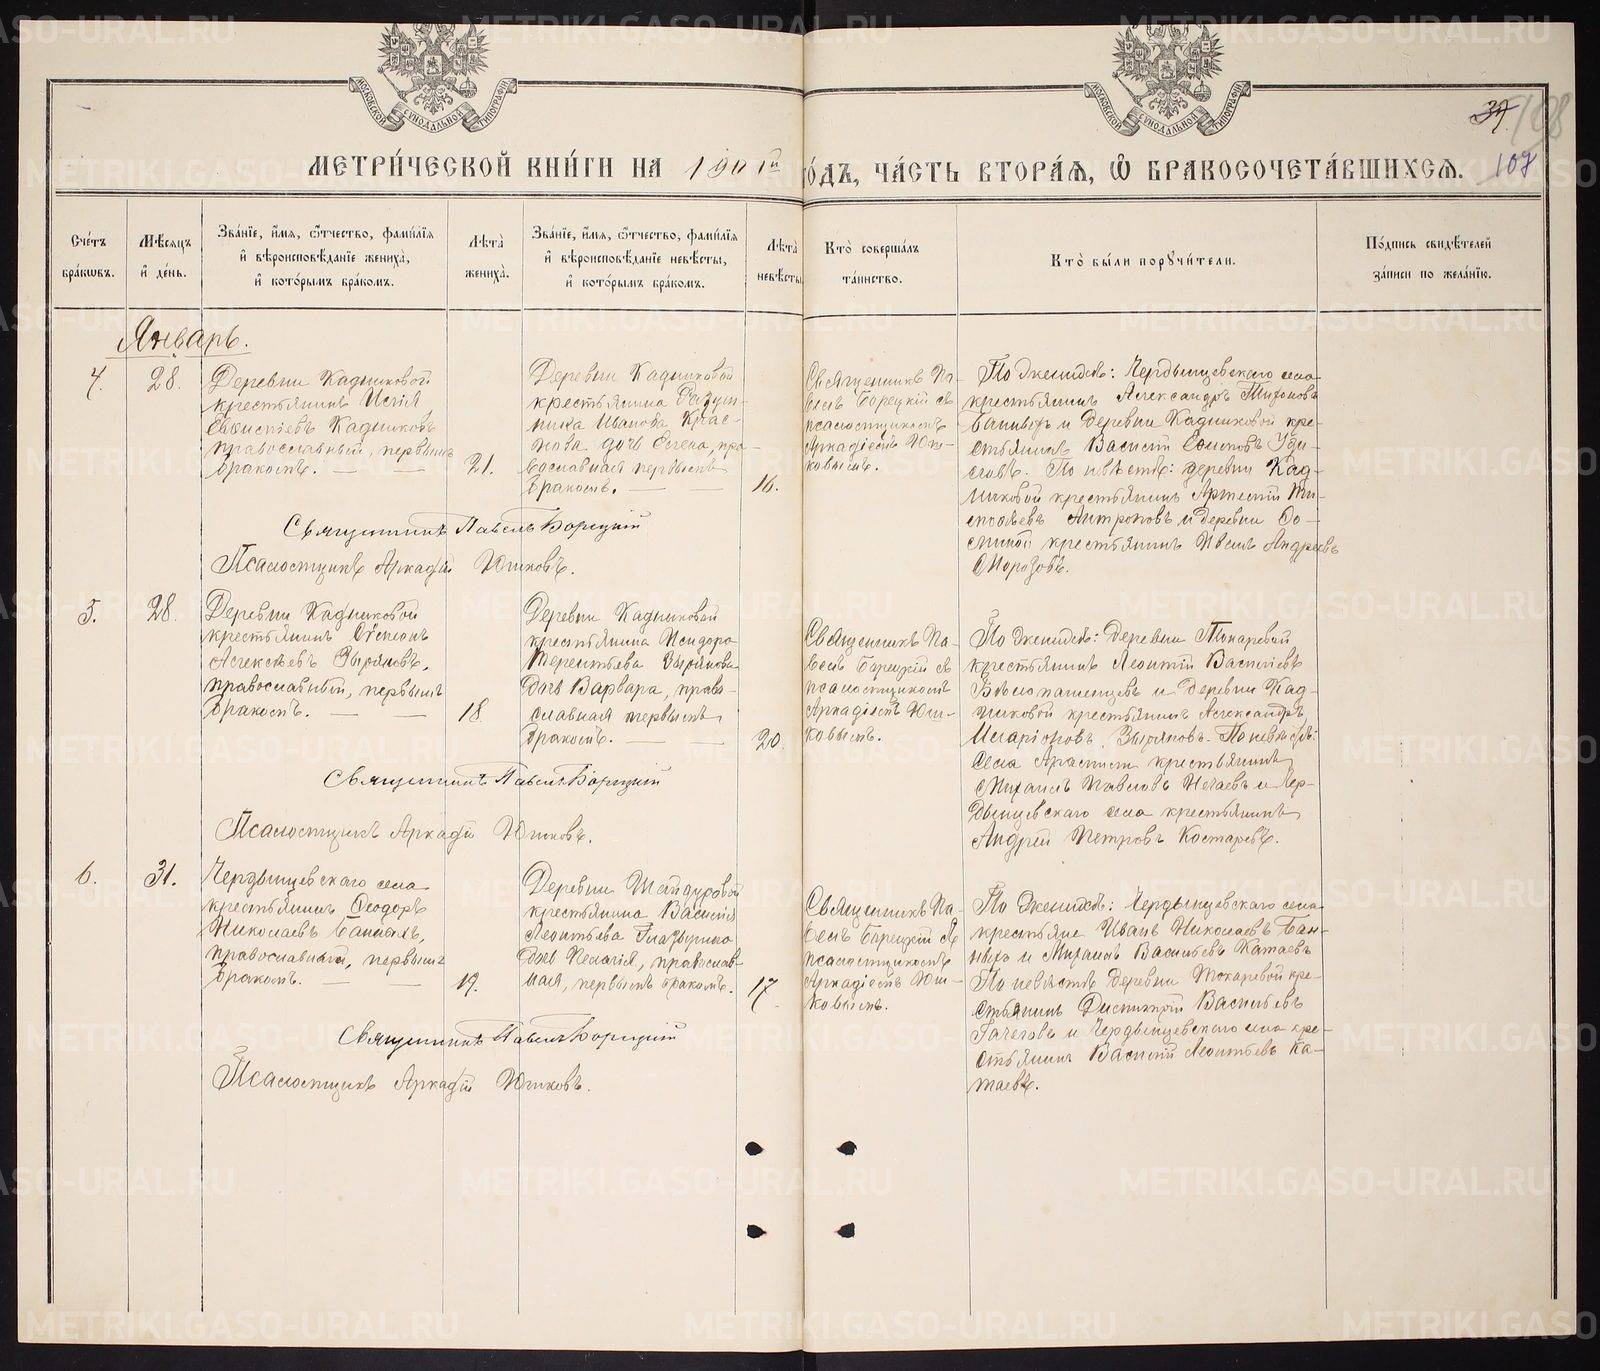 МОСКОВСКОЙ СѴНОДАЛЬНОЙ ТИПОГРАФІИ
МОСКОВСКОЙ СѴНОДАЛЬНОЙ ТИПОГРАФІИ
37. 108
МЕТРИ́ЧЕСКОЙ КНИ́ГИ НА 1901й ГО́ДЪ, ЧА́СТЬ ВТОРА́Ѧ, Ѽ БРАКОСОЧЕТА́ВШИХСѦ. 107
Сче́тъ бра́кѡвъ.
Мѣ́сѧцъ и҆ де́нь.
Зва́нїе, и҆́мѧ, ѻ҆́тчество, фами́лїѧ и҆ вѣроисповѣ́данїе жениха̀, и҆ кото́рымъ бра́комъ.
Лѣта̀ жениха̀.
Зва́нїе, и҆́мѧ, ѻ҆́тчество, фами́лїѧ и҆ вѣроисповѣ́данїе невѣ́сты, и҆ кото́рымъ бра́комъ.
Лѣта̀ невѣ́сты
Кто̀ соверша́лъ та́инство.
Кто̀ бы́ли порꙋчи́тели.
По́дпись свидѣ́телей за́писи по жела́нїю.
Январь.
4.
28.
Деревни Кадниковой
крестьянинъ
Кадниковъ
православный, первымъ
бракомъ. — —
21.
Деревни Кадниковой
крестьянина
Иванова Крас-
нова дочь Елена, пра-
вославная первымъ
бракомъ. — —
16.
Священникъ Па-
велъ Борецкій съ
псаломщикомъ
Аркадіемъ Юш-
ковымъ.
По женихѣ: Чердынцевскаго села
крестьянинъ Александръ Тихоновъ
Банныхъ и деревни Кадниковой кре-
стьянинъ Василій
По невѣстѣ: деревни Кад-
никовой крестьянинъ Артемій Ти-
моѳеевъ Антроповъ и деревни
крестьянинъ Иванъ Андреевъ
Морозовъ.
Священникъ Павелъ Борецкій
Псаломщикъ Аркадій Юшковъ.
5.
28.
Деревни Кадниковой
крестьянинъ
Алексѣевъ Зыряновъ,
православный, первымъ
бракомъ. — —
18.
Деревни Кадниковой
крестьянина Исидора
Терентьева Зырянова
дочь Варвара, право-
славная первымъ
бракомъ. — —
20.
Священникъ Па-
велъ Борецкій съ
псаломщикомъ
Аркадіемъ Юш-
ковымъ.
По женихѣ: деревни Токаревой
крестьянинъ Леонтій Васильевъ
Бѣлопашенцевъ и деревни Кад-
никовой крестьянинъ Александръ
Иларіоновъ Зыряновъ. По невѣстѣ:
села крестьянинъ
Михаилъ Павловъ Нечаевъ и Чер-
дынцевскаго села крестьянинъ
Андрей Петровъ Костаревъ.
Священникъ Павелъ Борецкій
Псаломщикъ Аркадій Юшковъ.
6.
31.
Чердынцевскаго села
крестьянинъ Ѳеодоръ
Николаевъ Банныхъ,
православный, первымъ
бракомъ. — —
19.
Деревни Шайдуровой
крестьянина Василія
Леонтьева Глазырина
дочь Пелагія, православ-
ная, первымъ бракомъ.
17.
Священникъ Па-
велъ Борецкій съ
псаломщикомъ
Аркадіемъ Юш-
ковымъ.
По женихѣ: Чердынцевскаго села
крестьяне Иванъ Николаевъ Бан-
ныхъ и Михаилъ Васильевъ Катаевъ
По невѣстѣ деревни Токаревой кре-
стьянинъ Димитрій Васильевъ
и Чердынцевскаго села кре-
стьянинъ Василій Леонтьевъ Ка-
таевъ.
Священникъ Павелъ Борецкій
Псаломщикъ Аркадій Юшковъ.
METRIKI.GASO-URAL.RU